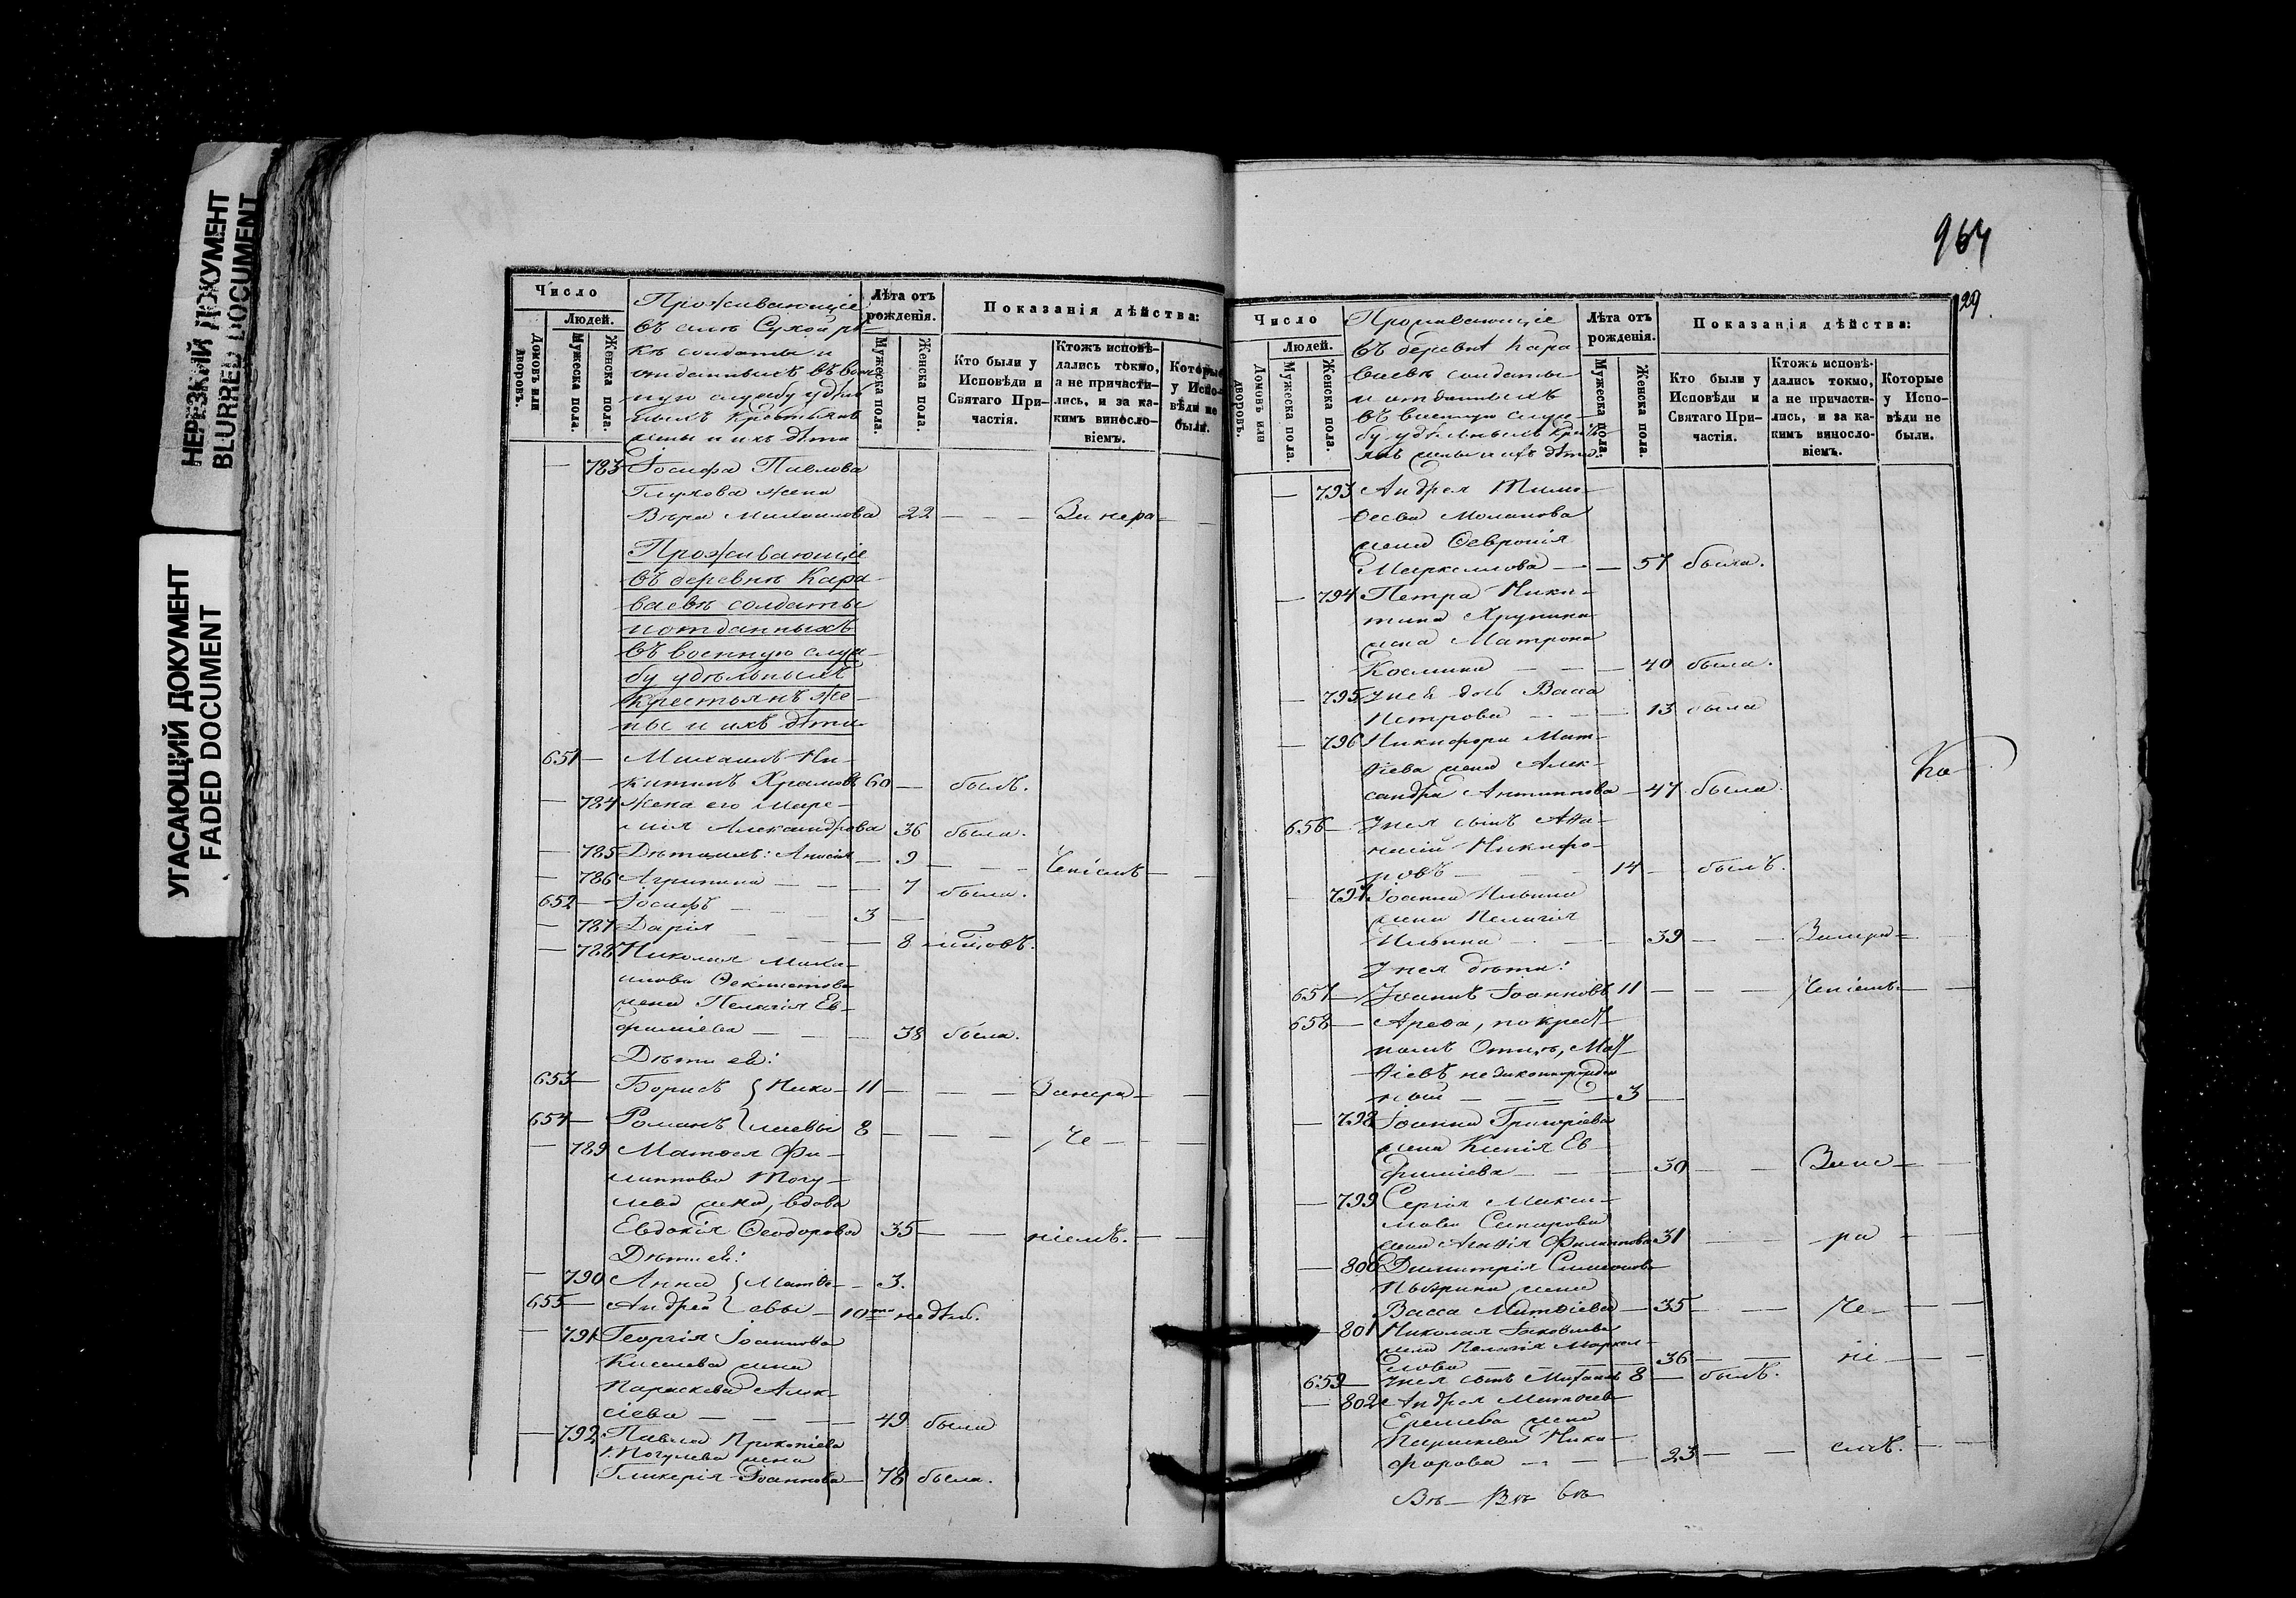 НЕРЕЗКИЙ ДОКУМЕНТ
BLURRED DOCUMENT
УГАСАЮЩИЙ ДОКУМЕНТ
FADED DOCUMENT
Число
Людей.
Домовъ или дворовъ.
Мужеска пола.
Женска пола.
Проживающіе
въ селѣ Сухой рѣ-
кѣ солдаты и
отданныхъ въ воен
ную службу удѣль
ныхъ крестьянъ
жены и ихъ дѣти
Лѣта отъ рожденія.
Мужеска пола.
Женска пола.
Показанія дѣйства:
Кто были у Исповѣди и Святаго При-частія.
Ктожъ исповѣ-дались токмо, а не причасти-лись, и за ка-кимъ винословіемъ.
Которые у Испо-вѣди не были.
— 783 Іосифа Павлова
Глухова жена
Вѣра Михаилова 22 — — — За нера —
Проживающіе
въ деревнѣ Кара-
ваевѣ солдаты
и отданныхъ
въ военную служ-
бу удѣльныхъ
крестьянъ же-
ны и ихъ дѣти
651 — Михаилъ Ни-
китинъ Храмовъ 60 — былъ.
— 784 Жена его
Александрова 36 была.
— 785 Дѣти ихъ: Анисія — 9 — — — ченіемъ —
— 786 Агрипина — — — 7 была.
652 — Іосифъ — — 3 —
— 787 Дарія — — — 8
— 788 Николая Миха-
илова
жена Пелагія Ев-
фиміева — — 38 была.
Дѣти ей:
653 — Борисъ } Нико- 11 — — — За нера —
654 — Романъ } лаевы 8 — — — че —
— 789 Матѳея Фи-
липпова
жена, вдова
Евдокія Ѳеодорова 35 — — ніемъ. —
Дѣти ей:
— 790 Анна } Матѳе- — 3.
655 — Андрей } евы — 10ти недѣль.
— 791 Георгія Іоаннова
Киселева жена
Параскева Алек-
сіева — — — 49 была
— 792 Павла Прокопіева
жена
Гликерія Іоаннова — 78 была.
964
29.
Число
Людей.
Домовъ или дворовъ.
Мужеска пола.
Женска пола.
Проживающіе
въ деревнѣ Кара
ваевѣ солдаты
и отданныхъ
въ военную служ-
бу удѣльныхъ кресть-
янъ жены и ихъ дѣти.
Лѣта отъ рожденія.
Мужеска пола.
Женска пола.
Показанія дѣйства:
Кто были у Исповѣди и Святаго При-частія.
Ктожъ исповѣ-дались токмо, а не причасти-лись, и за ка-кимъ винословіемъ.
Которые у Испо-вѣди не были.
— 793 Андрея Тимо-
ѳеева
жена Ѳевронія
Маркеллова — — 57 была.
— 794 Петра Ники-
тина Хрунина
жена Матрона
Космина — — — 40 была.
— 795 У ней дочь Васса
Петрова — — — 13 была
— 796 Никифора Мат-
ѳіева жена Алек-
сандра Антипова — 47 была.
Ка
656 — У нея сынъ Аѳа-
насій Никифо-
ровъ — — — 14 — былъ.
— 797 Іоанна Ильина
жена Пелагія
Ильина — — 39 — — За нера —
У нея дѣти:
657 — Іоаннъ Іоанновъ 11 — — — ченіемъ. —
658 — Ареѳа, по крест-
номъ Отцѣ, Мат-
ѳіевъ незаконнорожден
ный — — — 3 —
— 798 Іоанна Григоріева
жена Ксенія Ев-
фиміева — — — 30 — — За не —
— 799 Сергія Макси-
мова
жена Агаѳія Филиппова 31 — — ра —
— 800 Димитрія Симеонова
жена
Васса Матѳіева — 35 — — че —
— 801 Николая Іаковлева
жена Пелагія Маркел-
лова — — — 36 — — ні —
659 — У нея сынъ Михаилъ 8 — былъ.
— 802 Андрея Матѳіева
жена
Параскева Ники-
форова — — — 23 — — емъ. —